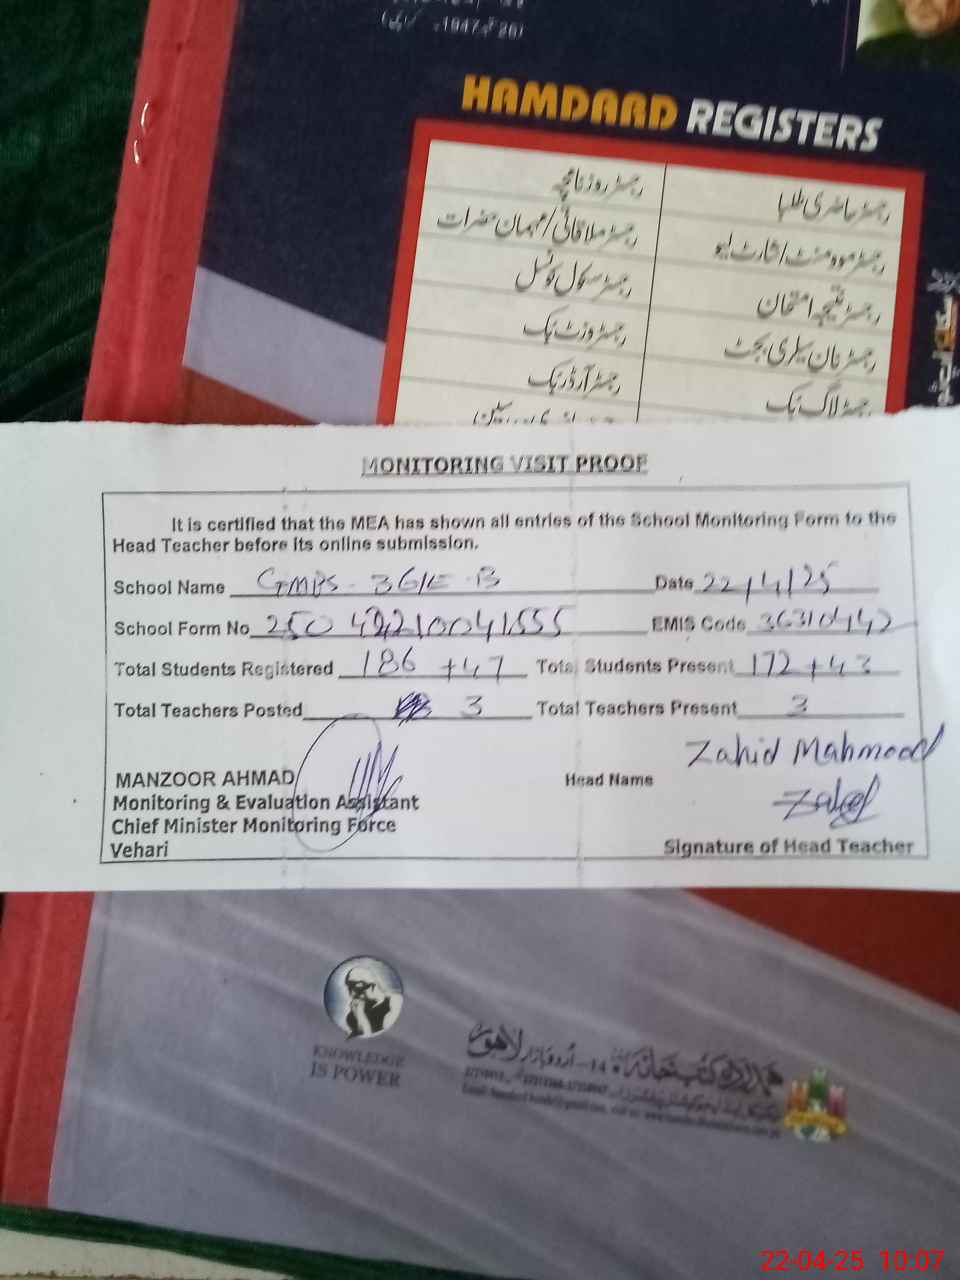 26 ستمبر 1947ء
HAMDARD REGISTERS
رجسٹر حاضری طلبا
رجسٹر روزنامچہ
رجسٹر موومنٹ/شارٹ لیو
رجسٹر ملاقاتی/مہمان حضرات
رجسٹر نتیجہ امتحان
رجسٹر سکول کونسل
رجسٹر نان سیلری بجٹ
رجسٹر وزٹ بک
رجسٹر لاگ بک
رجسٹر آرڈر بک
MONITORING VISIT PROOF
It is certified that the MEA has shown all entries of the School Monitoring Form to the
Head Teacher before its online submission.
School Name GMPS - 36/E-B Date 22/4/25
School Form No EMIS Code 36310442
Total Students Registered 186 + 47 Total Students Present 172 + 43
Total Teachers Posted 3 Total Teachers Present 3
Zahid Mahmood
MANZOOR AHMAD Head Name
Monitoring & Evaluation Assistant
Chief Minister Monitoring Force
Vehari Signature of Head Teacher
KNOWLEDGE
IS POWER
ہمدرد کتب خانہ 14-اردو بازار لاہور
22-04-25 10:07